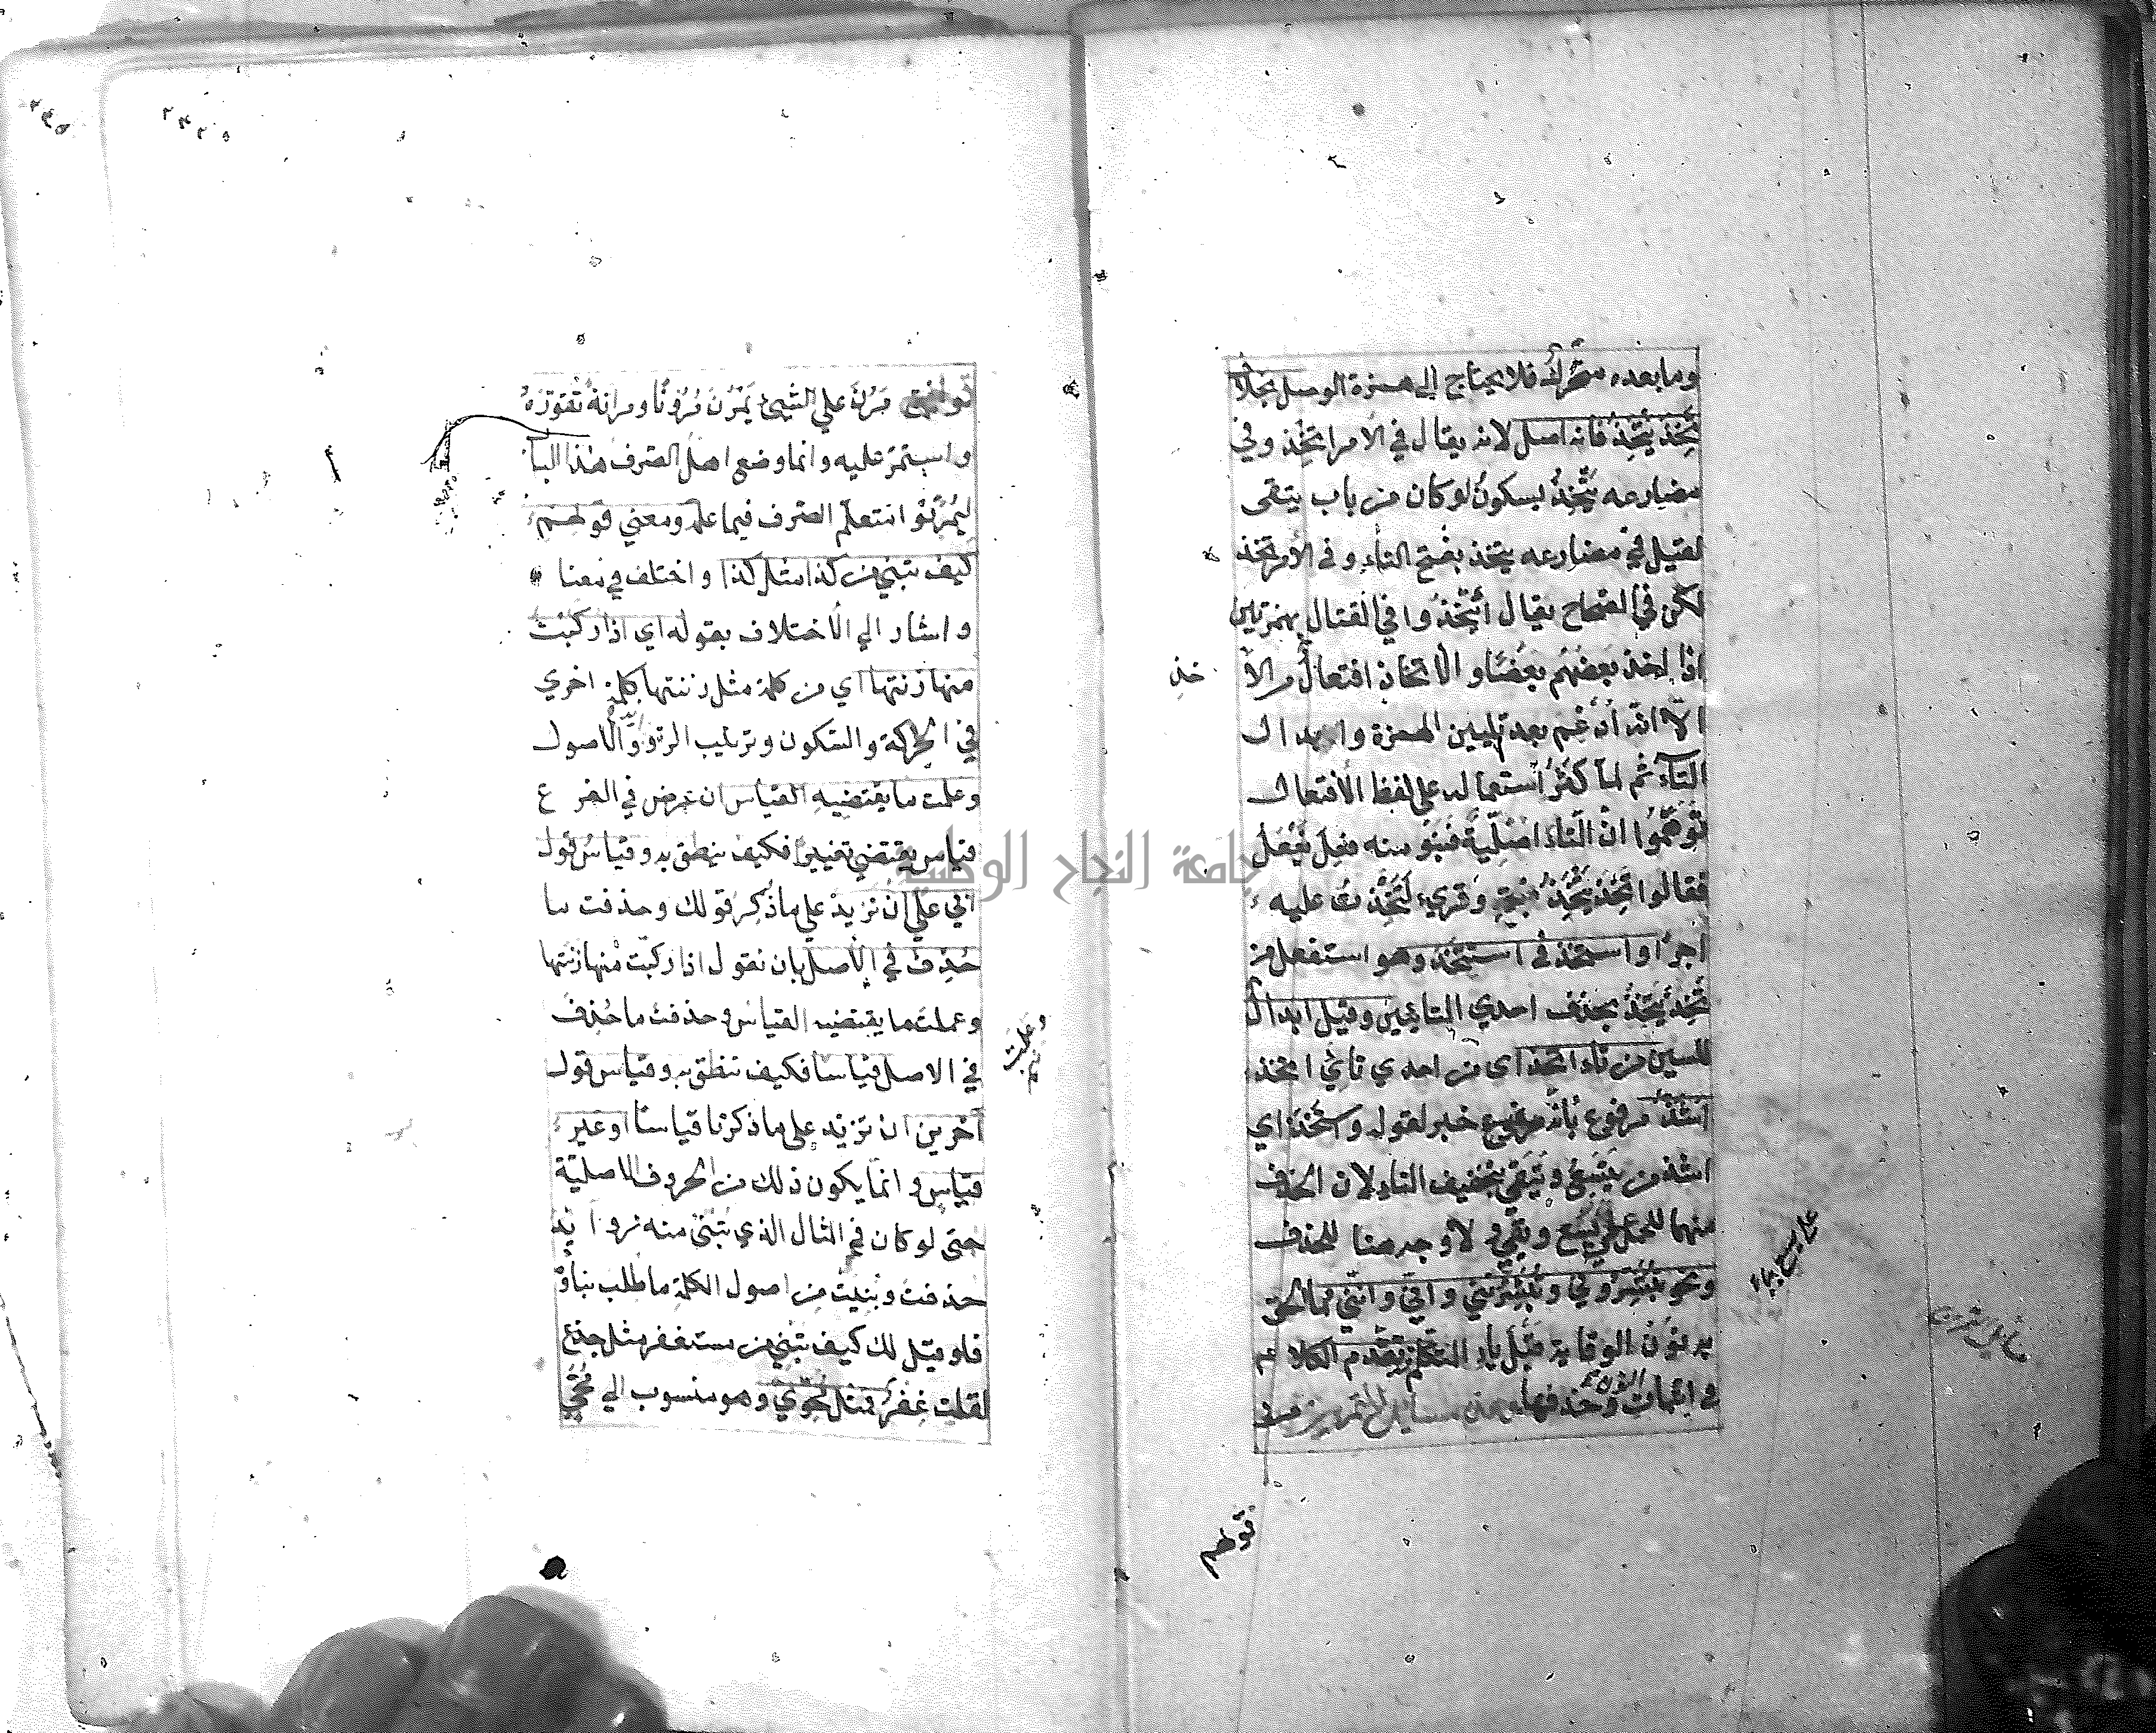 وما بعده متحرك فلا يحتاج الى همزة الوصل بخلاف
تَخِذَ يَتْخَذُ فانه اصل لانه يقال في الامر اتخذ وفي
مضارعه يَتْخَذُ بسكون لو كان من باب يتقى
لقيل في مضارعه يتخذ بفتح التاء وفي الامر تخذ
لكن في الصحاح يقال أئتخذوا في القتال بهمزتين
اذا اخذ بعضهم بعضا والاتخاذ افتعال من الأ
خذ
الا انه أدغم بعد تليين الهمزة وابدال
التاء ثم لما كثر استعماله على لفظ الافتعال
توهموا ان التاء اصلية فبنو منه فعل يفعل
فقالوا تخذ يتخذ وقريء لتخذت عليه
أجرا واستخذ في استتخذ وهو استفعل من
تخذ يتخذ بحذف احدي التائين وقيل ابدال
السين من تاء اتخذ اي من احدي تائي اتخذ
اشذ مرفوع بانه خبر لقوله واستخذ اي
اشذ من يتسع ويتقي بتخفيف التاء لان الحذف
منهما للحمل على يسع ويقي ولا وجه هنا للحذف
ونحو تبشروني وتبشرونني واني وانني مما الحق
به نون الوقاية قبل ياء المتكلم تقدم الكلام
في اثبات النون وحذفها وهذه مسائل التمرين
قولهم
مسائل التمرين
مرن على الشيئ يمرن مرونا ومرانة تعوده
واستمر عليه وانما وضع اهل الصرف هذا الباب
ليمرنوا متعلم الصرف فيما علمه ومعني قولهم
كيف تبني من كذا مثل كذا واختلف في معناه
واشار الي الاختلاف بقوله اي اذا ركبت
منها زنتها اي من كلمة مثل زنتها كلمة اخري
في الحركة والسكون وترتيب الزوايد والاصول
وعلمت ما يقتضيه القياس ان عرض في الفرع
قياس يقتضي تغييرا فكيف ينطق به وقياس قول
ابي علي ان تزيد على ما ذكر قولك وحذفت ما
حذف في الاصل بان نقول اذا ركبت منها زنتها
وعملت ما يقتضيه القياس وحذفت ما حذف
في الاصل قياسا فكيف تنطق به وقياس قول
آخرين ان تزيد على ما ذكرنا قياسا او غير
قياس وانما يكون ذلك من الحروف الاصلية
حتى لو كان في المثال الذي تبنى منه زوايد
حذفت وبنيت من اصول الكلمة ما طلب بناؤه
فلو قيل لك كيف تبني من مستغفر مثل جذع
لقلت غفر فمثل محوي وهو منسوب الي محي
جامعة النجاح الوطنية